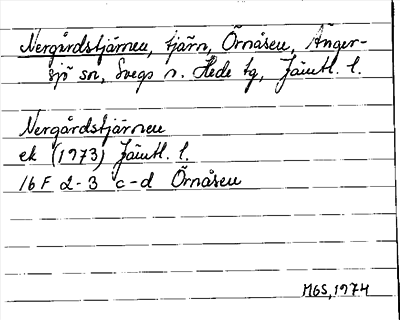 Nergårdstjärnen, tjärn, Örnåsen, Änger-
sjö sn, Svegs o. Hede tg, Jämtl. l.
Nergårdstjärnen
ek (1973) Jämtl. l.
16 F 2-3 c-d Örnåsen
MGS, 1974